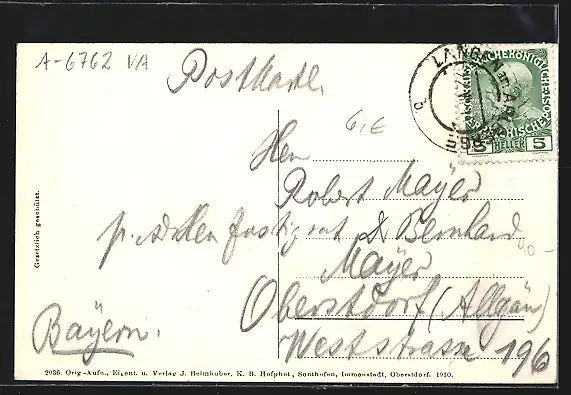 A-6762 VA
Postkarte
6,E
Herr
Robert Mayer
p. Justizrat Dr Bernhard
Mayer
Oberstdorf (Allgäu)
Weststrasse 196
Bayern.
90 -
Gesetzlich geschützt.
5 HELLER 5
2036. Orig.-Aufn., Eigent. u. Verlag J. Heimhuber, K. B. Hofphot., Sonthofen, Immenstadt, Oberstdorf. 1910.